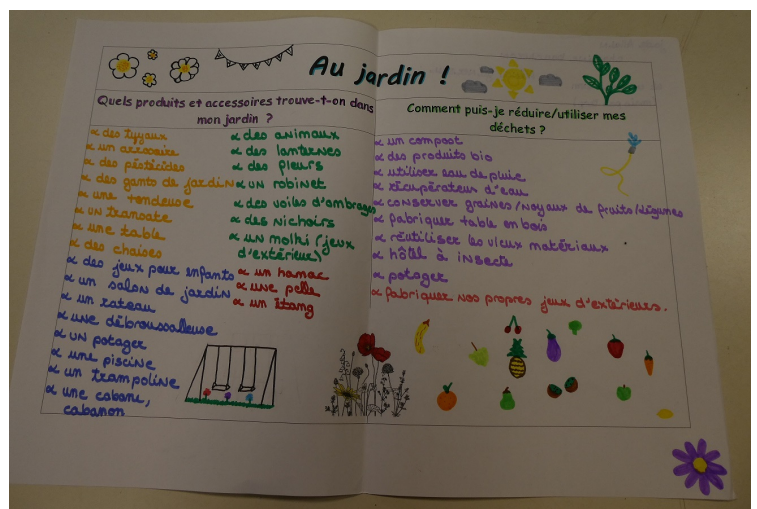 Au jardin !
Quels produits et accessoires trouve-t-on dans
mon jardin ?
∝ des tuyaux
∝ un arrosoire
∝ des pésticides
∝ des gants de jardin
∝ une tondeuse
∝ un transate
∝ une table
∝ des chaises
∝ des jeux pour enfants
∝ un salon de jardin
∝ un rateau
∝ une débroussalleuse
∝ un potager
∝ une piscine
∝ un trampoline
∝ une cabane,
cabanon
∝ des animaux
∝ des lanternes
∝ des fleurs
∝ un robinet
∝ des voiles d'ombrages
∝ des nichoirs
∝ un molki (jeux
d'extérieur)
∝ un hamac
∝ une pelle
∝ un étang
Comment puis-je réduire/utiliser mes
déchets ?
∝ un compost
∝ des produits bio
∝ utiliser eau de pluie
∝ récupérateur d'eau
∝ conserver graines/noyaux de fruits/légumes
∝ fabriquer table en bois
∝ réutiliser les vieux matériaux
∝ hôtel à insecte
∝ potager
∝ fabriquer nos propres jeux d'extérieurs.